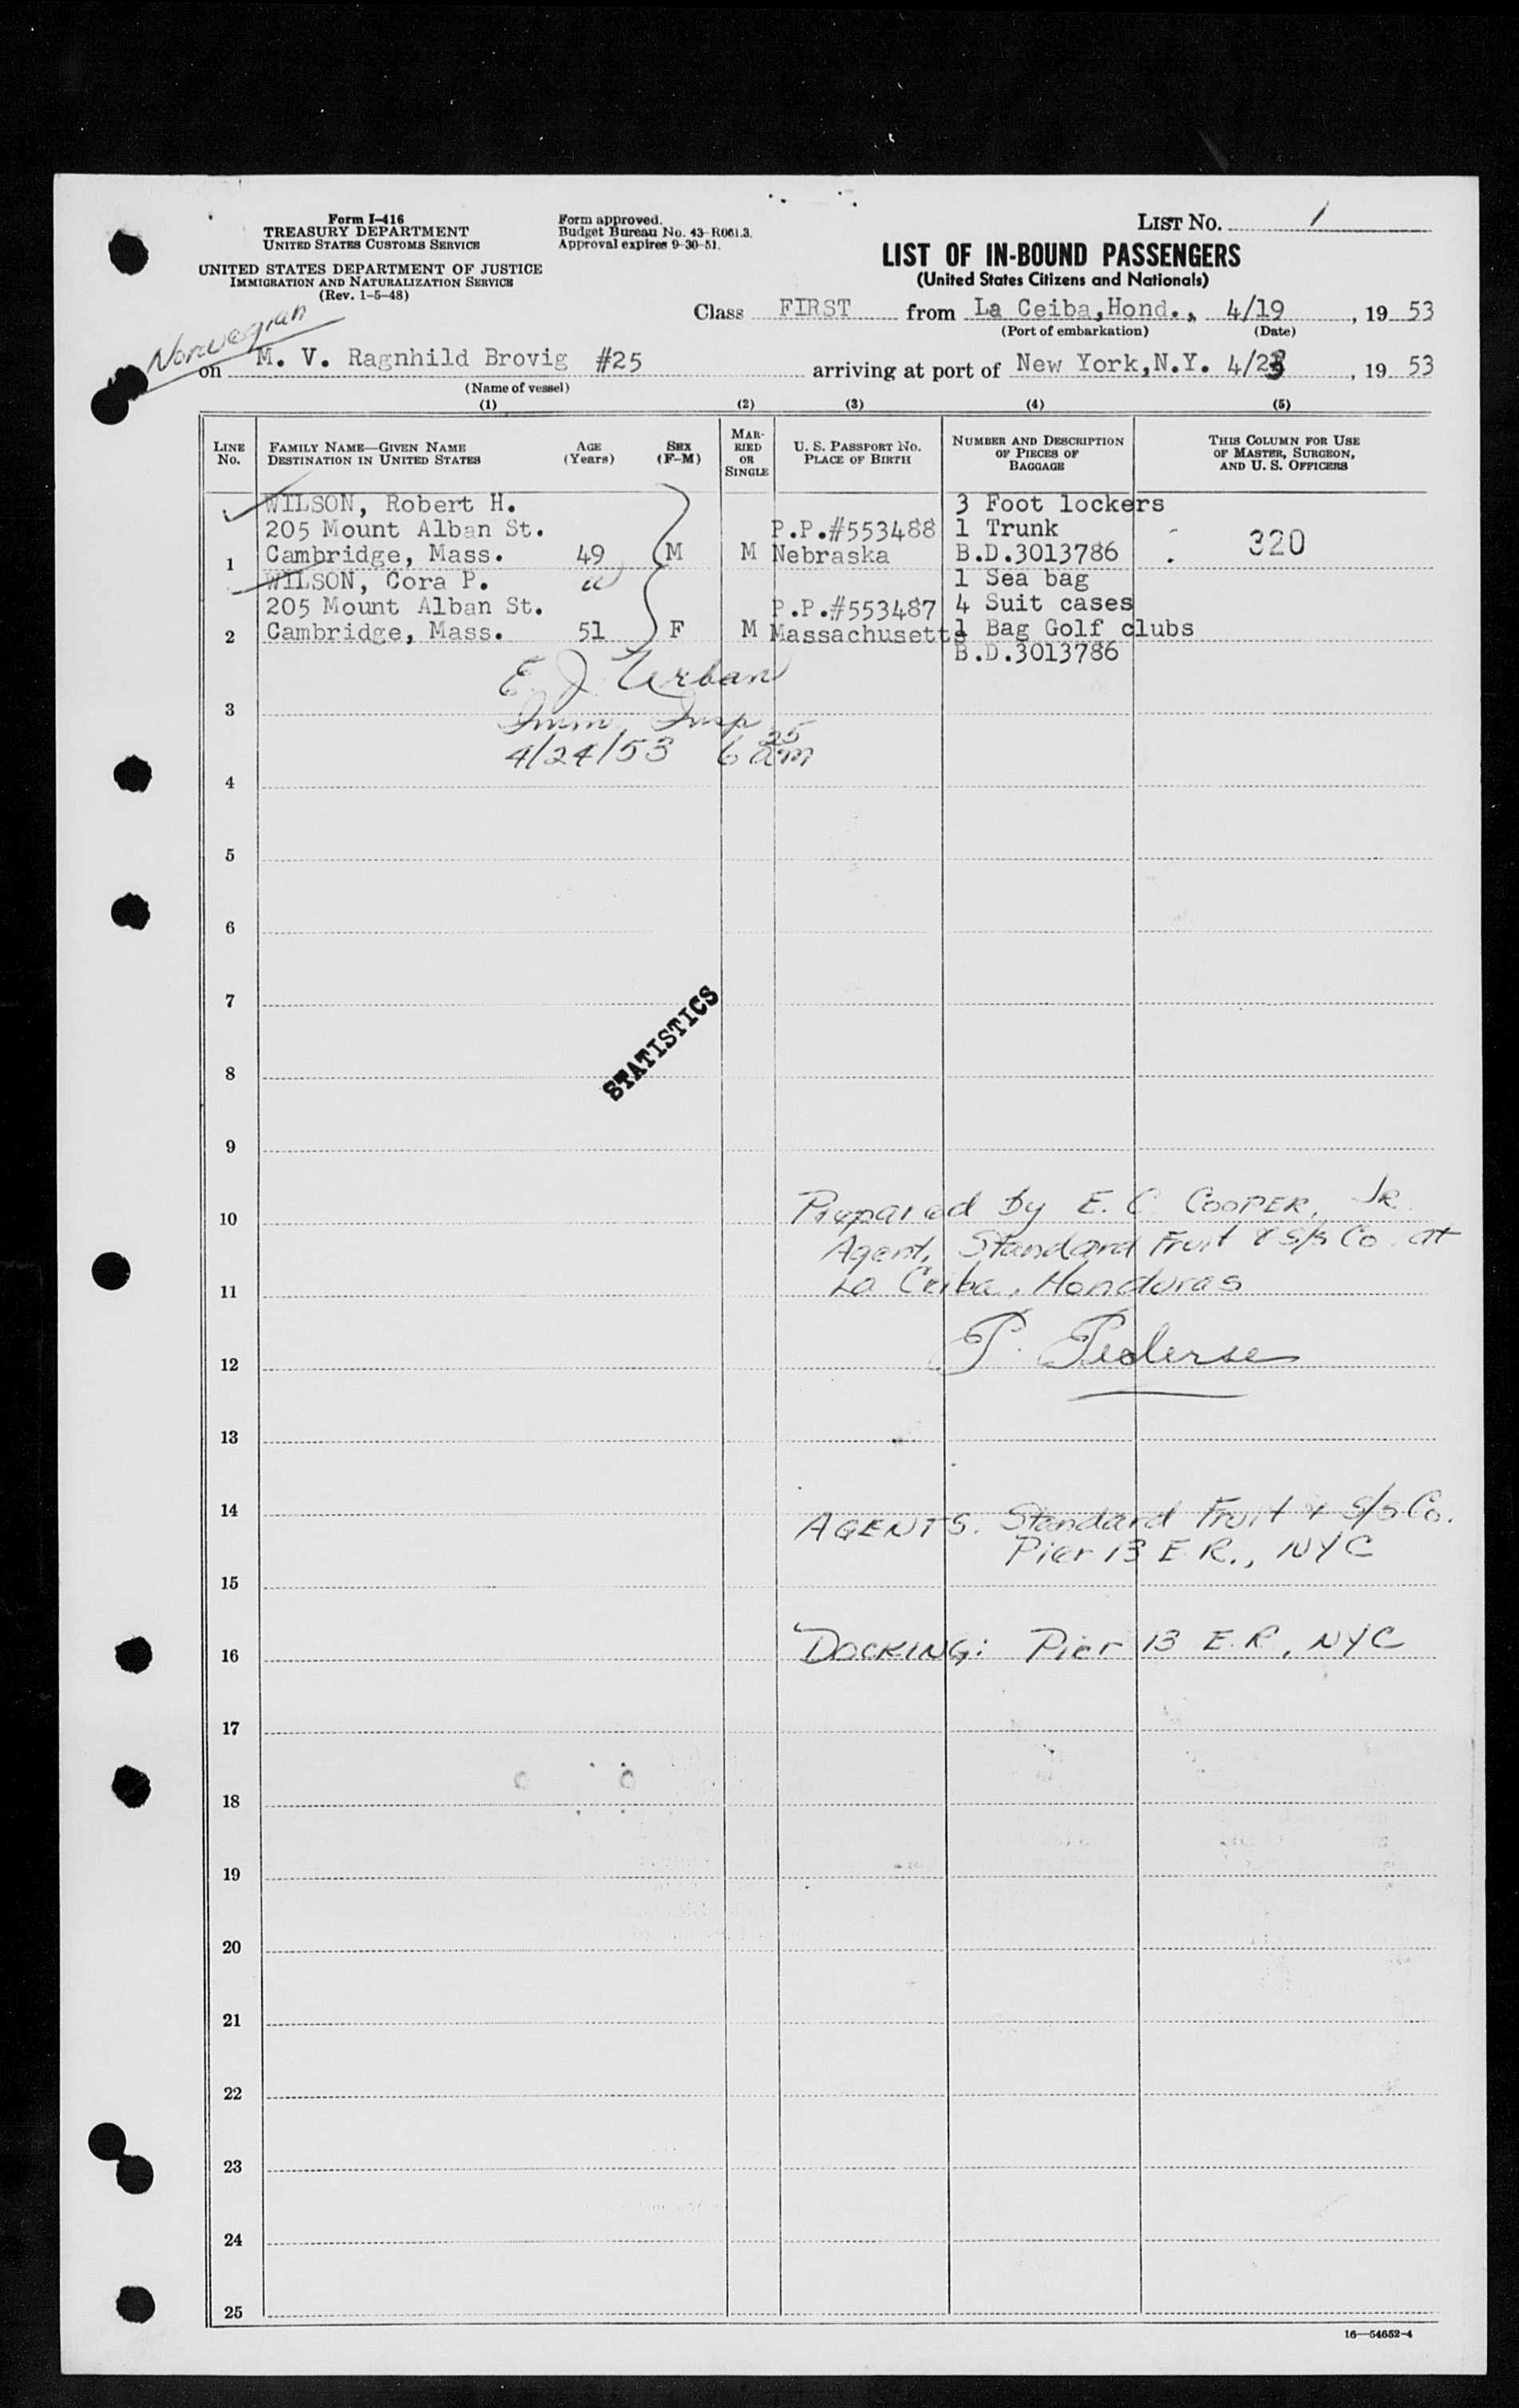 Form I-416
TREASURY DEPARTMENT
UNITED STATES CUSTOMS SERVICE
UNITED STATES DEPARTMENT OF JUSTICE
IMMIGRATION AND NATURALIZATION SERVICE
(Rev. 1-5-48)
Form approved.
Budget Bureau No. 43-R061.3.
Approval expires 9-30-51.
LIST No. 1
LIST OF IN-BOUND PASSENGERS
(United States Citizens and Nationals)
Class FIRST from La Ceiba, Hond., 4/19, 19 53
(Port of embarkation) (Date)
Norwegian
on M. V. Ragnhild Brovig #25 arriving at port of New York, N.Y. 4/23, 19 53
(Name of vessel)
(1) (2) (3) (4) (5)
LINE No.
FAMILY NAME—GIVEN NAME
DESTINATION IN UNITED STATES
AGE (Years)
SEX (F-M)
MARRIED OR SINGLE
U. S. PASSPORT NO.
PLACE OF BIRTH
NUMBER AND DESCRIPTION OF PIECES OF BAGGAGE
THIS COLUMN FOR USE OF MASTER, SURGEON, AND U. S. OFFICERS
WILSON, Robert H. 3 Foot lockers
205 Mount Alban St. P.P.#553488 1 Trunk
1 Cambridge, Mass. 49 M M Nebraska B.D.3013786 320
WILSON, Cora P. 1 Sea bag
205 Mount Alban St. P.P.#553487 4 Suit cases
2 Cambridge, Mass. 51 F M Massachusetts 1 Bag Golf clubs
B.D.3013786
E. J. Urban
3 Imm. Insp
4/24/53 6 25 am
4
5
6
7
STATISTICS
8
9
10 Prepared by E. C. COOPER, JR.
Agent, Standard Fruit & S/S Co. at
11 La Ceiba, Honduras
12 P. Pedersen
13
14 AGENTS. Standard Fruit & S/S Co.
Pier 13 E.R., NYC
15
16 DOCKING: Pier 13 E.R., NYC
17
18
19
20
21
22
23
24
25
16—54652-4